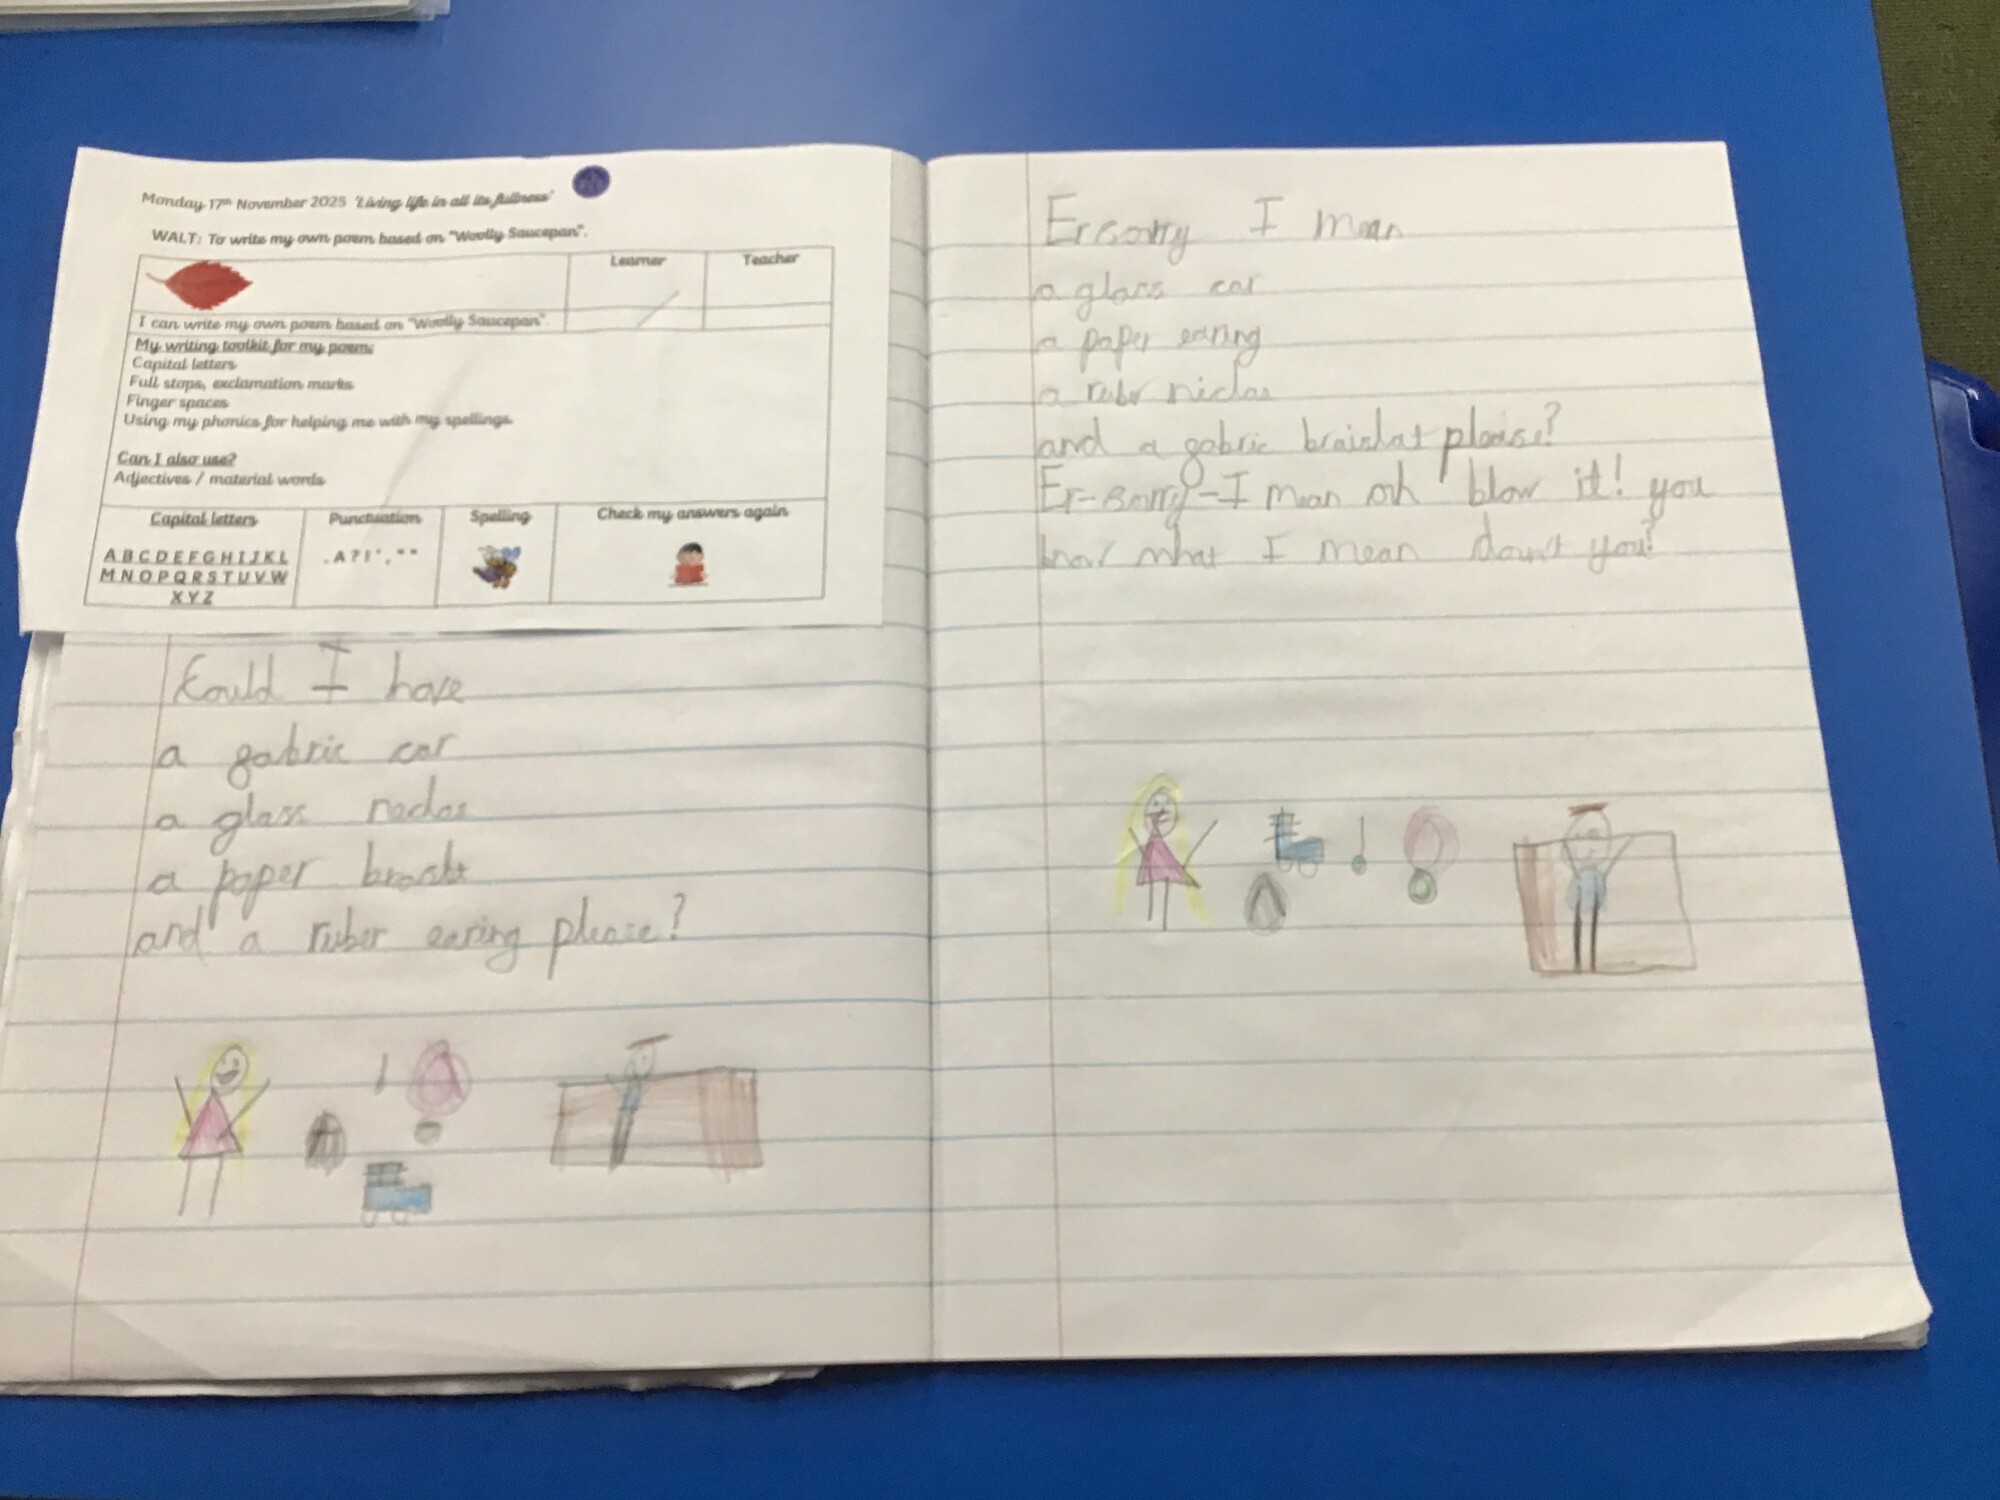 Monday 17th November 2025 'Living life in all its fullness'
WALT: To write my own poem based on "Woolly Saucepan".
Learner
Teacher
I can write my own poem based on "Woolly Saucepan".
My writing toolkit for my poem:
Capital letters
Full stops, exclamation marks
Finger spaces
Using my phonics for helping me with my spellings.
Can I also use?
Adjectives / material words
Capital letters
Punctuation
Spelling
Check my answers again
A B C D E F G H I J K L
M N O P Q R S T U V W
X Y Z
. A ? ! ' , " "
Could I have
a gabric car
a glass neclas
a paper
and a ruber earing please?
Er sorry I mean
a glass car
a paper earing
a rubr niclas
and a gabric please?
Er-sorry-I mean oh blow it! you
know what I mean don't you?